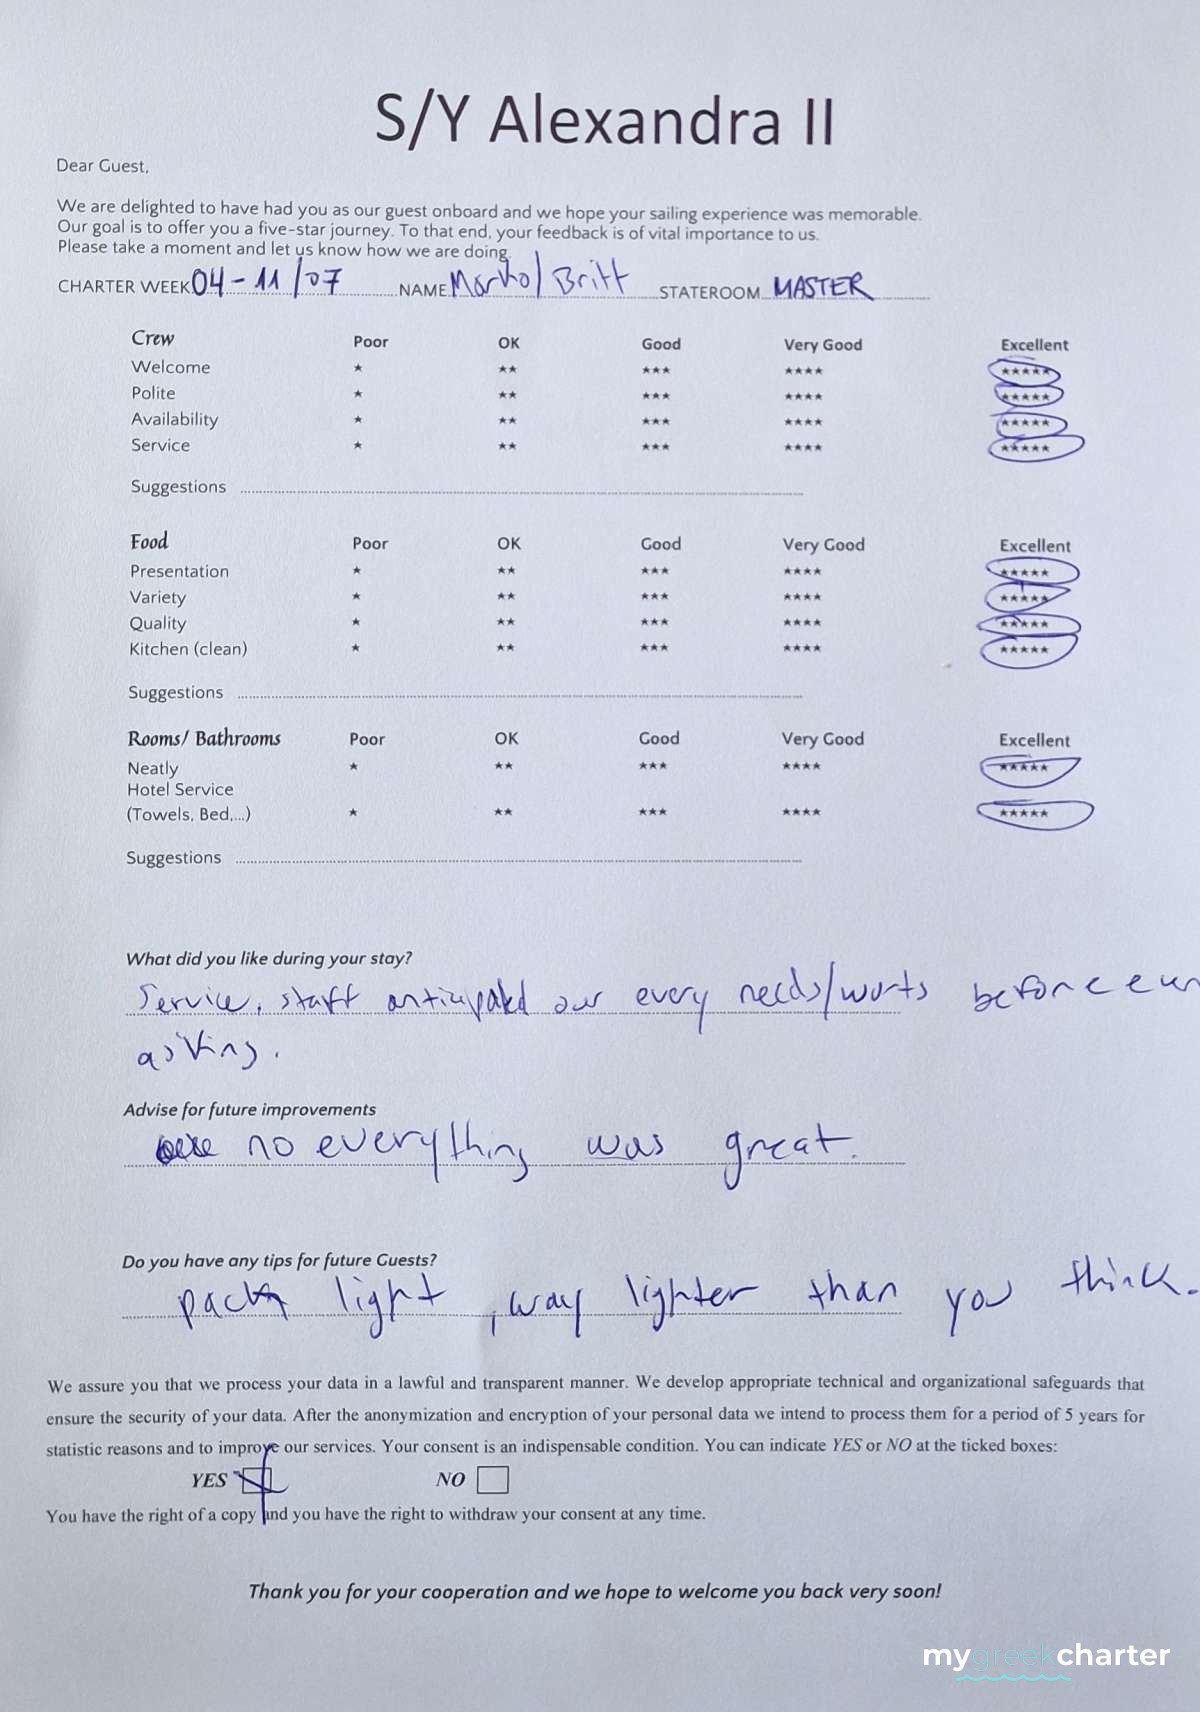 S/Y Alexandra II
Dear Guest,
We are delighted to have had you as our guest onboard and we hope your sailing experience was memorable.
Our goal is to offer you a five-star journey. To that end, your feedback is of vital importance to us.
Please take a moment and let us know how we are doing.
CHARTER WEEK 04 - 11/07 NAME / Britt STATEROOM MASTER
Crew Poor OK Good Very Good Excellent
Welcome ★ ★★ ★★★ ★★★★ ★★★★★
Polite ★ ★★ ★★★ ★★★★ ★★★★★
Availability ★ ★★ ★★★ ★★★★ ★★★★★
Service ★ ★★ ★★★ ★★★★ ★★★★★
Suggestions
Food Poor OK Good Very Good Excellent
Presentation ★ ★★ ★★★ ★★★★ ★★★★★
Variety ★ ★★ ★★★ ★★★★ ★★★★★
Quality ★ ★★ ★★★ ★★★★ ★★★★★
Kitchen (clean) ★ ★★ ★★★ ★★★★ ★★★★★
Suggestions
Rooms/ Bathrooms Poor OK Good Very Good Excellent
Neatly ★ ★★ ★★★ ★★★★ ★★★★★
Hotel Service
(Towels, Bed,...) ★ ★★ ★★★ ★★★★ ★★★★★
Suggestions
What did you like during your stay?
Service, staff anticipated our every needs/wants before
asking.
Advise for future improvements
no everything was great.
Do you have any tips for future Guests?
pack light, way lighter than you think.
We assure you that we process your data in a lawful and transparent manner. We develop appropriate technical and organizational safeguards that
ensure the security of your data. After the anonymization and encryption of your personal data we intend to process them for a period of 5 years for
statistic reasons and to improve our services. Your consent is an indispensable condition. You can indicate YES or NO at the ticked boxes:
YES NO
You have the right of a copy and you have the right to withdraw your consent at any time.
Thank you for your cooperation and we hope to welcome you back very soon!
mygreekcharter